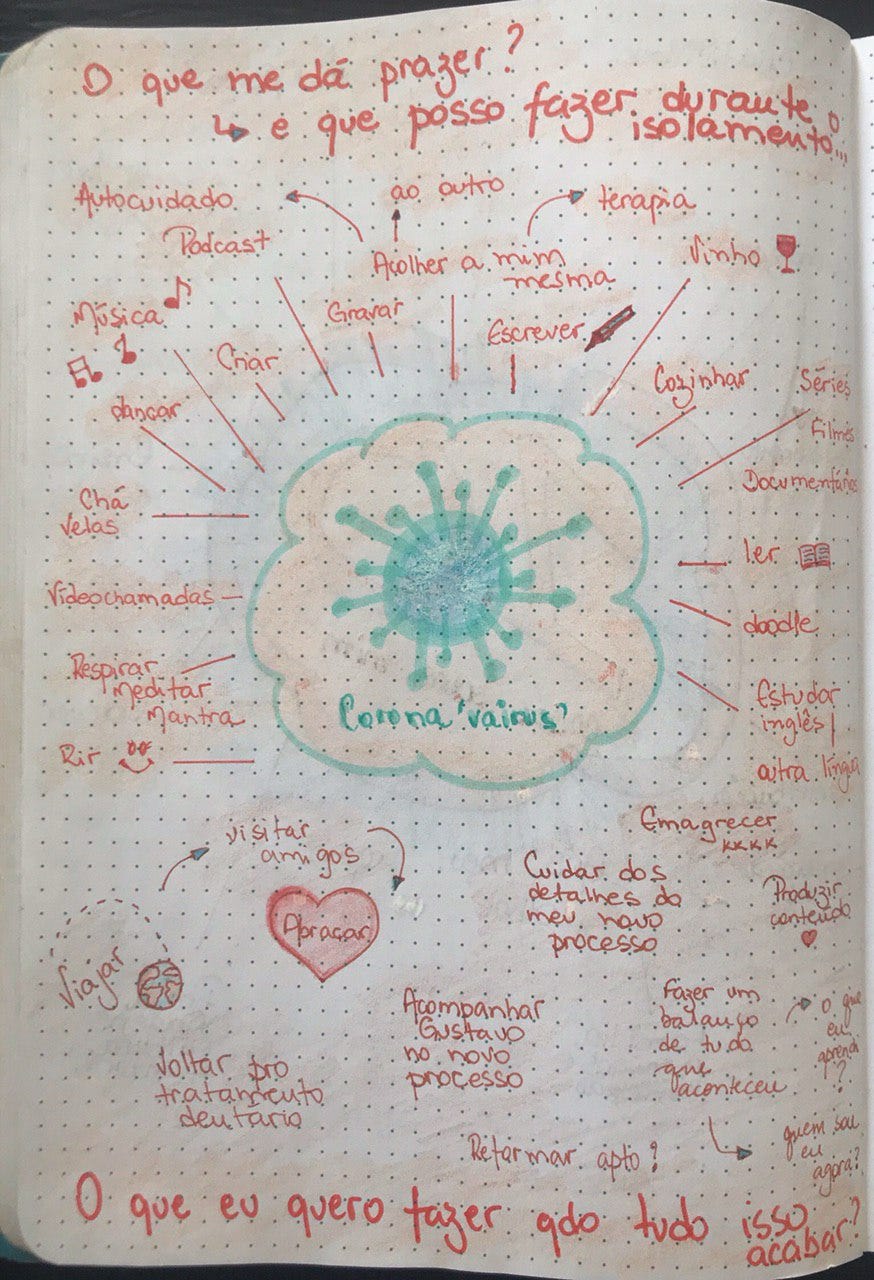 O que me dá prazer?
↳ e que posso fazer durante o
isolamento...
Autocuidado
ao outro
terapia
Podcast
Acolher a mim
mesma
Vinho
Música
Gravar
Escrever
Criar
Cozinhar
Séries
Filmes
Documentários
dançar
Chá
Velas
ler
Videochamadas
doodle
Respirar
Meditar
Mantra
Estudar
inglês/
outra língua
Rir
Corona 'vairus'
visitar
amigos
Emagrecer
kkkk
Cuidar dos
detalhes do
meu novo
processo
Produzir
conteúdo
Abraçar
Viajar
Acompanhar
Gustavo
no novo
processo
Fazer um
balanço
de tudo
que
aconteceu
o que
eu
aprendi
?
Voltar pro
tratamento
dentário
quem sou
eu
agora?
Reformar apto?
O que eu quero fazer qdo tudo isso
acabar?